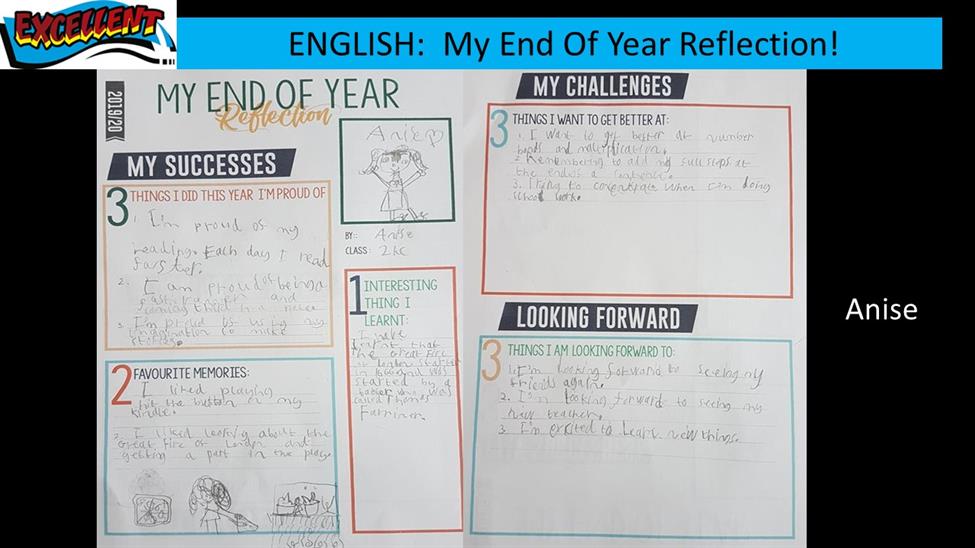 EXCELLENT
ENGLISH: My End Of Year Reflection!
2019/20
MY END OF YEAR
Reflection
MY SUCCESSES
3 THINGS I DID THIS YEAR I'M PROUD OF
1. I'm proud of my
reading. Each day I read
faster.
2. I am proud of being a
fast runner and
coming third in a race
3. I'm proud of using my
imagination to make
stories.
2 FAVOURITE MEMORIES:
I liked playing
hit the button on my
kindle.
2. I liked learing about the
Great fire of London and
getting a part in the play.
Anise
BY: Anise
CLASS: 2KC
1 INTERESTING
THING I
LEARNT:
I
learnt that
the Great Fire
of London started
in 1666 and was
started by a
baker who was
called Thomas
Farriner.
MY CHALLENGES
3 THINGS I WANT TO GET BETTER AT:
1. I want to get better at number
bonds and multiplication.
2. Remembering to add my full stops at
the end of a sentence.
3. Trying to when I'm doing
school work.
LOOKING FORWARD
3 THINGS I AM LOOKING FORWARD TO:
1. I'm looking forward to seeing my
friends again.
2. I'm looking forward to seeing my
new teacher.
3. I'm excited to learn new things.
Anise